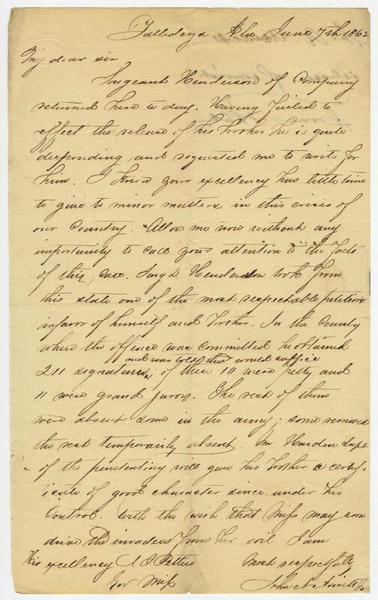 Talledega Ala June 7th 1862
My dear sir
Sargeant Henderson of Company
returned here to day. Having failed to
effect the release of his brother he is quite
desponding and requested me to write for
him. I know your excellency has little time
to give to minor matters in this crises of
our Country. Allow me now without any
importunity to call your attention to the facts
of this case. Sargt Henderson took from
this state one of the most respectable petitions
in favor of himself and brother. In the County
where the offence was committed he obtained
and was told that would suffice
211 signatures, of these 10 were petty and
11 were grand jurors. The rest of them
were absent some in the army; some removed
the rest temporarily absent. Mr Harden Supt
of the penitentiary will give his brother a certif
icate of good character since under his
control. With the wish that Miss may soon
drive the invaders from her soil I am
His excellency J J Pettus most respectfully
Gov Miss John